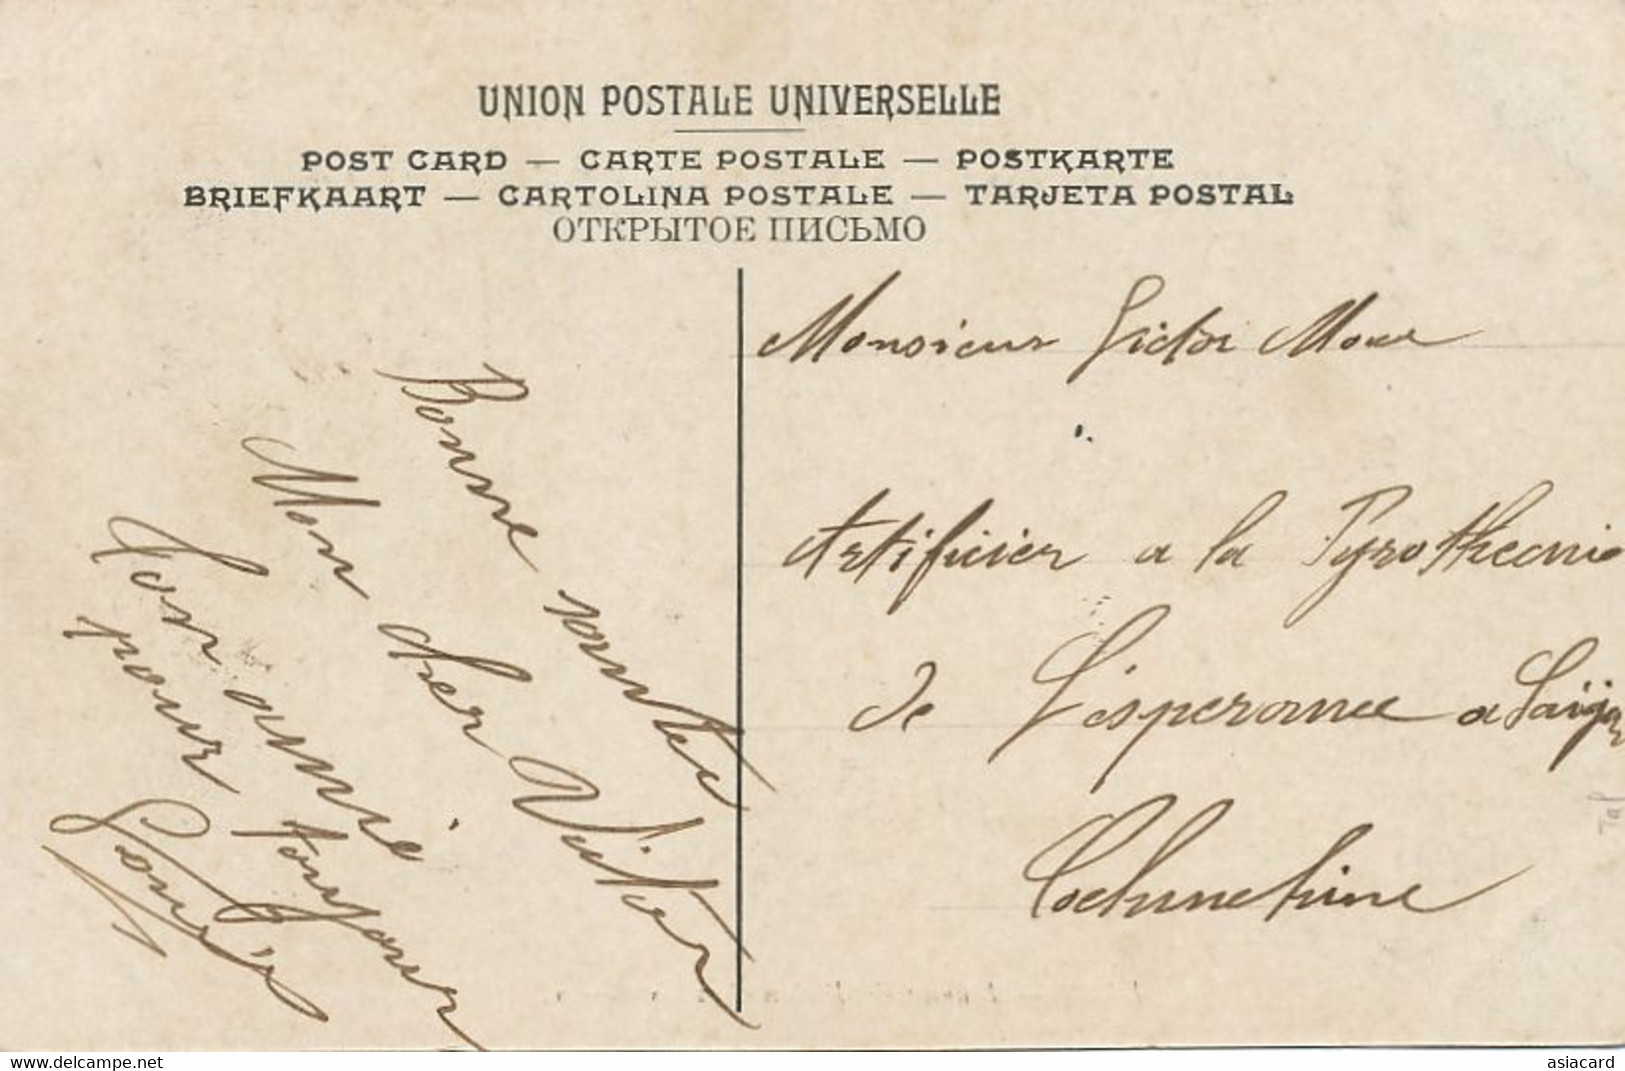 UNION POSTALE UNIVERSELLE
POST CARD — CARTE POSTALE — POSTKARTE
BRIEFKAART — CARTOLINA POSTALE — TARJETA POSTAL
ОТКРЫТОЕ ПИСЬМО
Bonne santée
Mon cher Victor
Ton amie
pour toujour
Louis
Monsieur Victor
Artificier a la Pyrothecnie
de L'esperance a Saïgon
Cochinchine
www.delcampe.net
asiacard